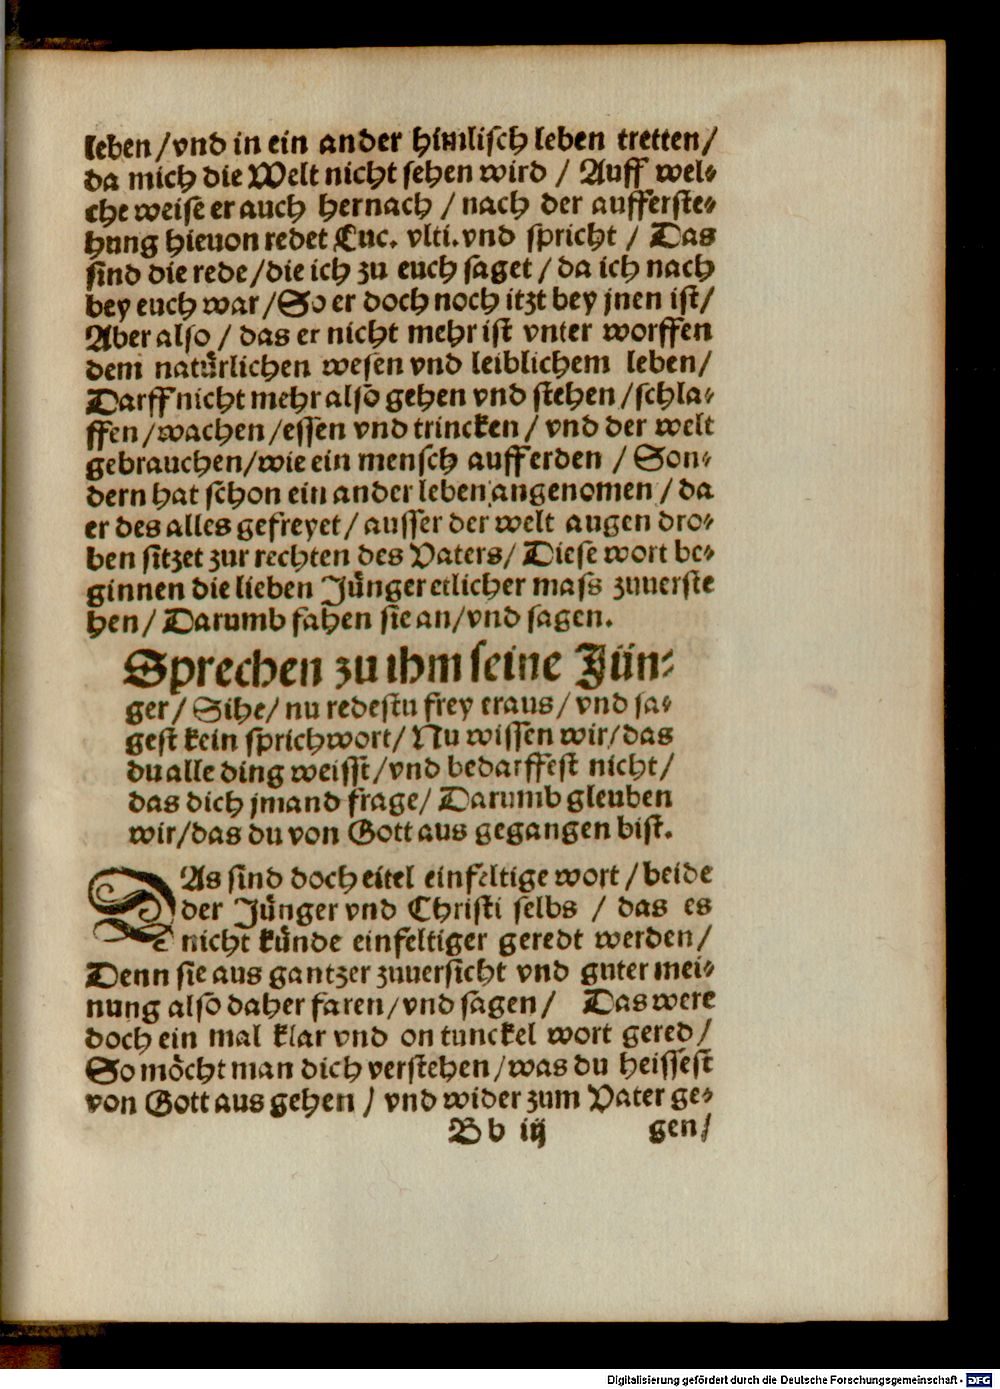 leben / vnd in ein ander himlisch leben tretten /
da mich die Welt nicht sehen wird / Auff wel-
che weise er auch hernach / nach der aufferste-
hung hieuon redet Luc. vlti. vnd spricht / Das
sind die rede / die ich zu euch saget / da ich nach
bey euch war / So er doch noch itzt bey jnen ist /
Aber also / das er nicht mehr ist vnter worffen
dem natürlichen wesen vnd leiblichem leben /
Darff nicht mehr also gehen vnd stehen / schla-
ffen / wachen / essen vnd trincken / vnd der welt
gebrauchen / wie ein mensch auff erden / Son-
dern hat schon ein ander leben angenomen / da
er des alles gefreyet / ausser der welt augen dro-
ben sitzet zur rechten des Vaters / Diese wort be-
ginnen die lieben Jünger etlicher mass zuuerste
hen / Darumb fahen sie an / vnd sagen.
Sprechen zu ihm seine Jün-
ger / Sihe / nu redestu frey eraus / vnd sa-
gest kein sprichwort / Nu wissen wir / das
du alle ding weisst / vnd bedarffest nicht /
das dich jmand frage / Darumb gleuben
wir / das du von Gott aus gegangen bist.
DAs sind doch eitel einfeltige wort / beide
der Jünger vnd Christi selbs / das es
nicht künde einfeltiger geredt werden /
Denn sie aus gantzer zuuersicht vnd guter mei-
nung also daher faren / vnd sagen / Das were
doch ein mal klar vnd on tunckel wort gered /
So möcht man dich verstehen / was du heissest
von Gott aus gehen / vnd wider zum Vater ge-
B b iij gen /
Digitalisierung gefördert durch die Deutsche Forschungsgemeinschaft - DFG